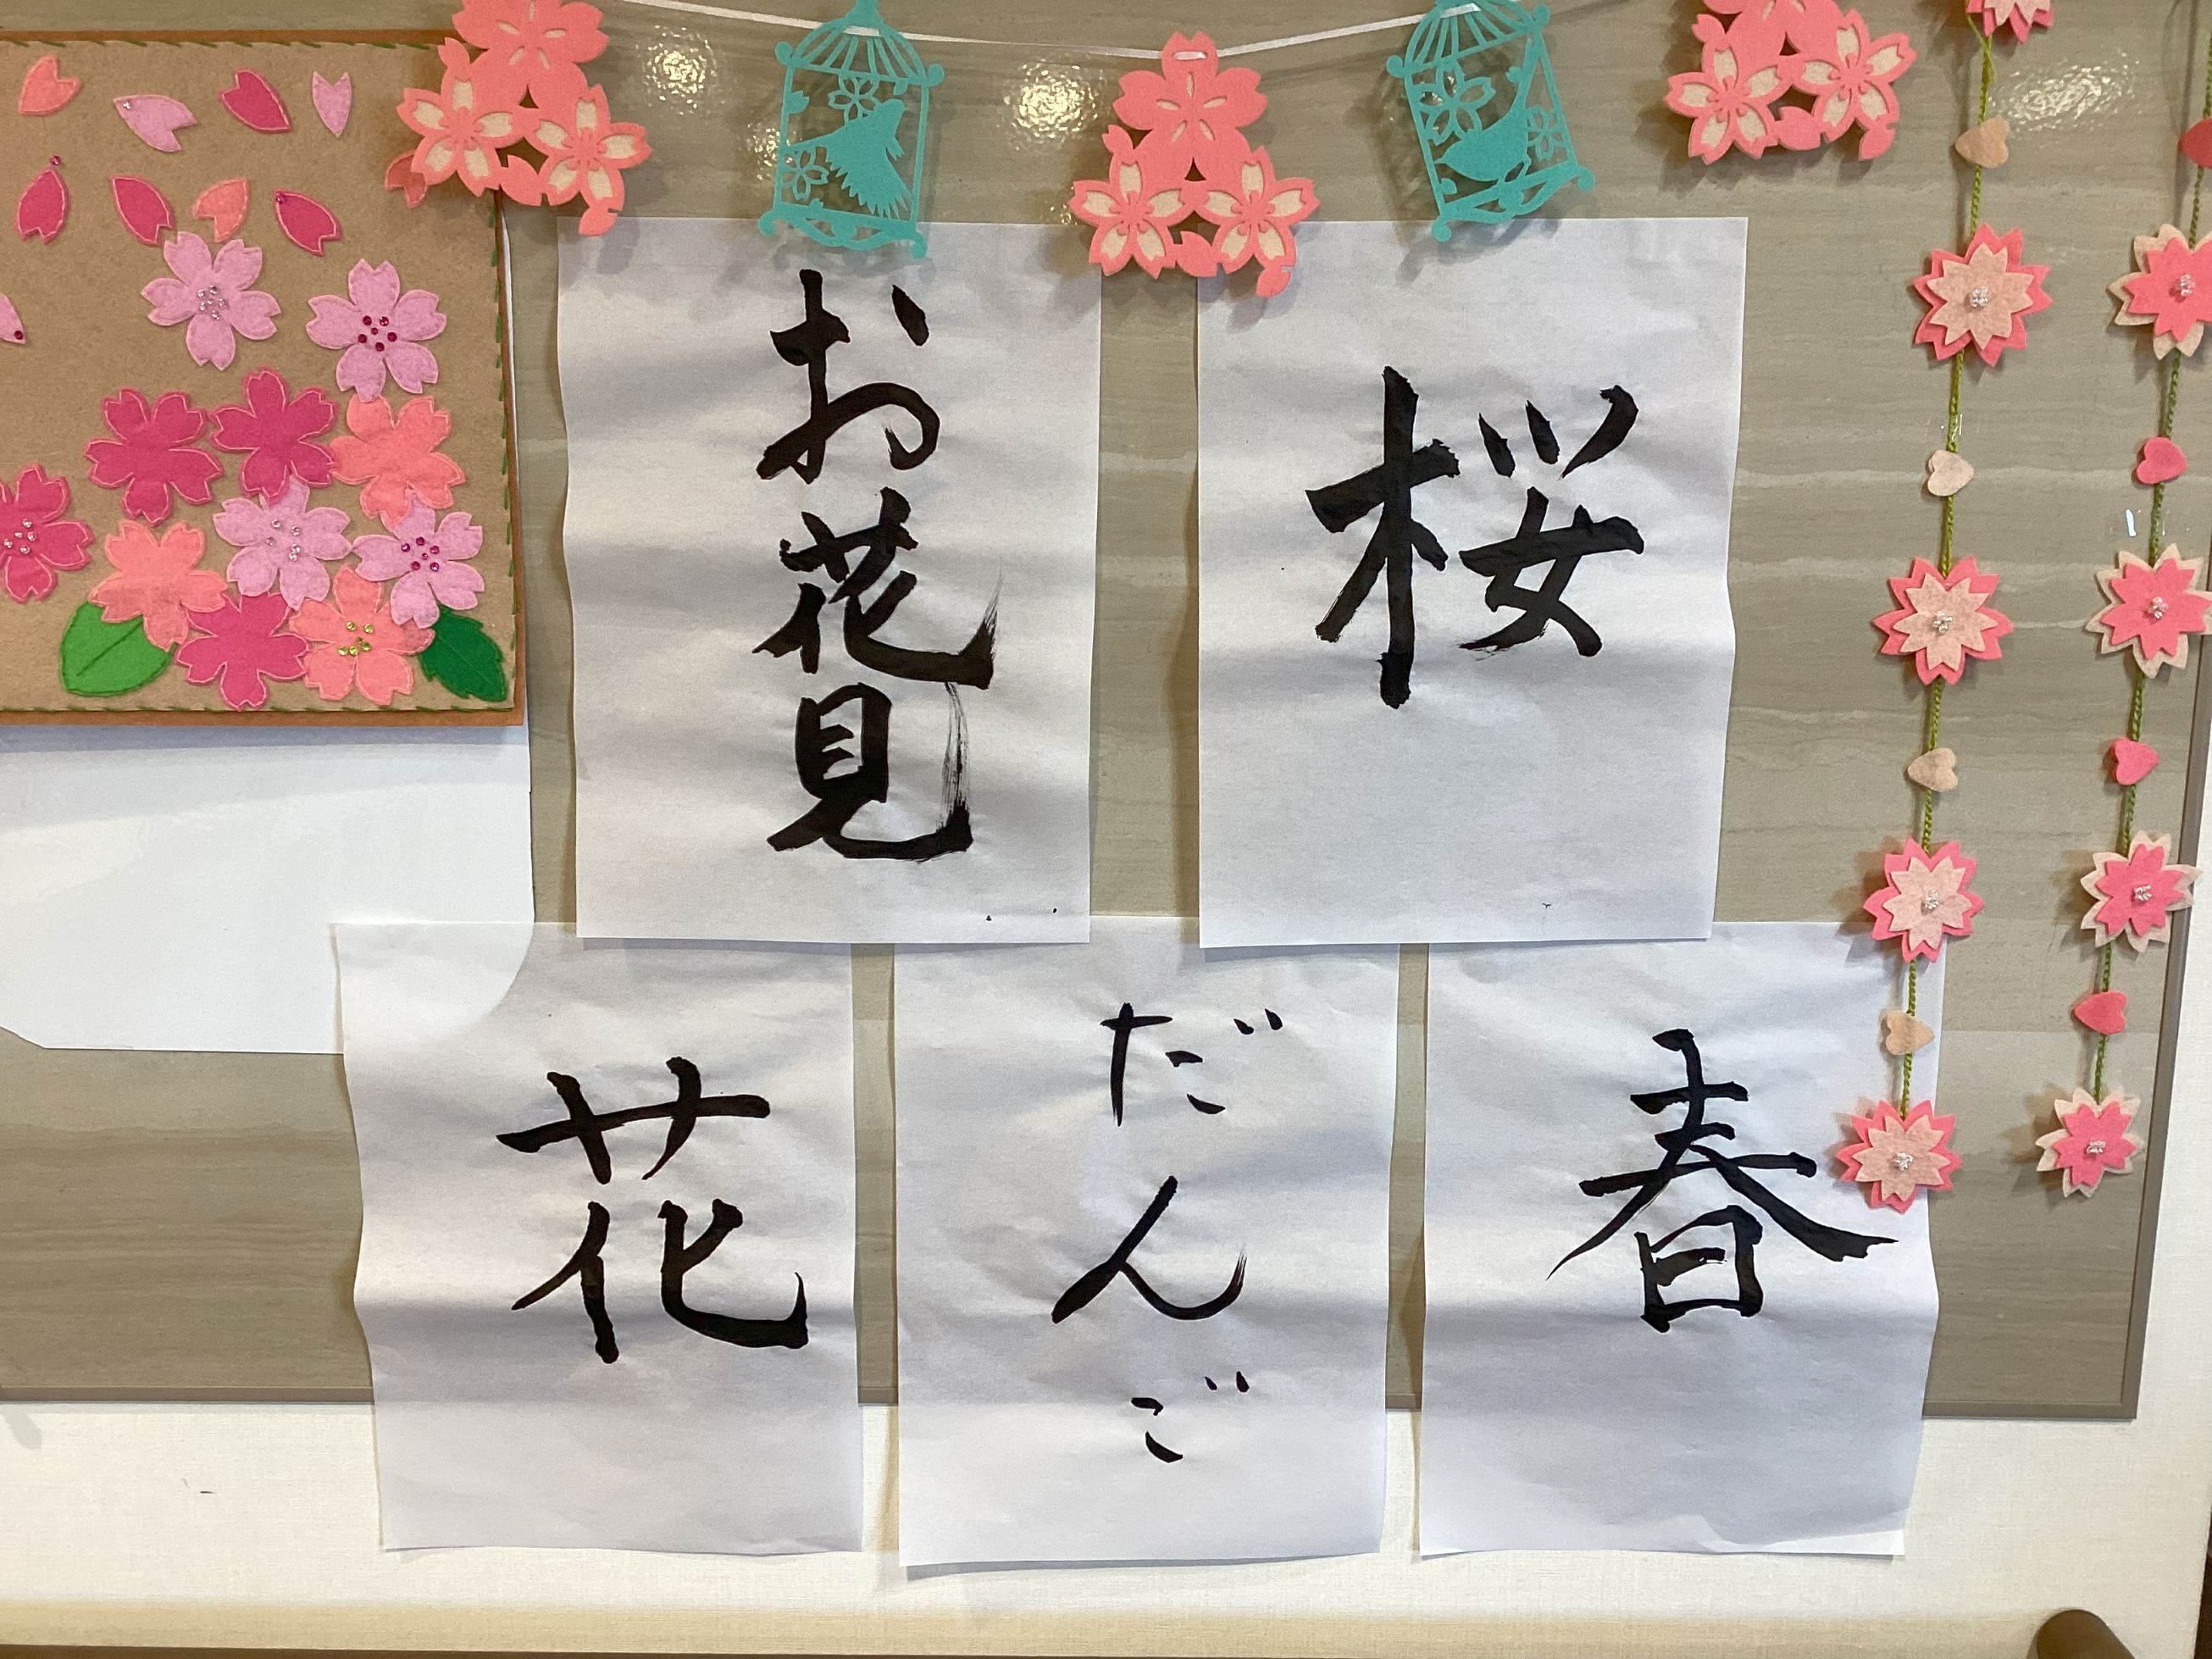 桜
お花見
春
だんご
花